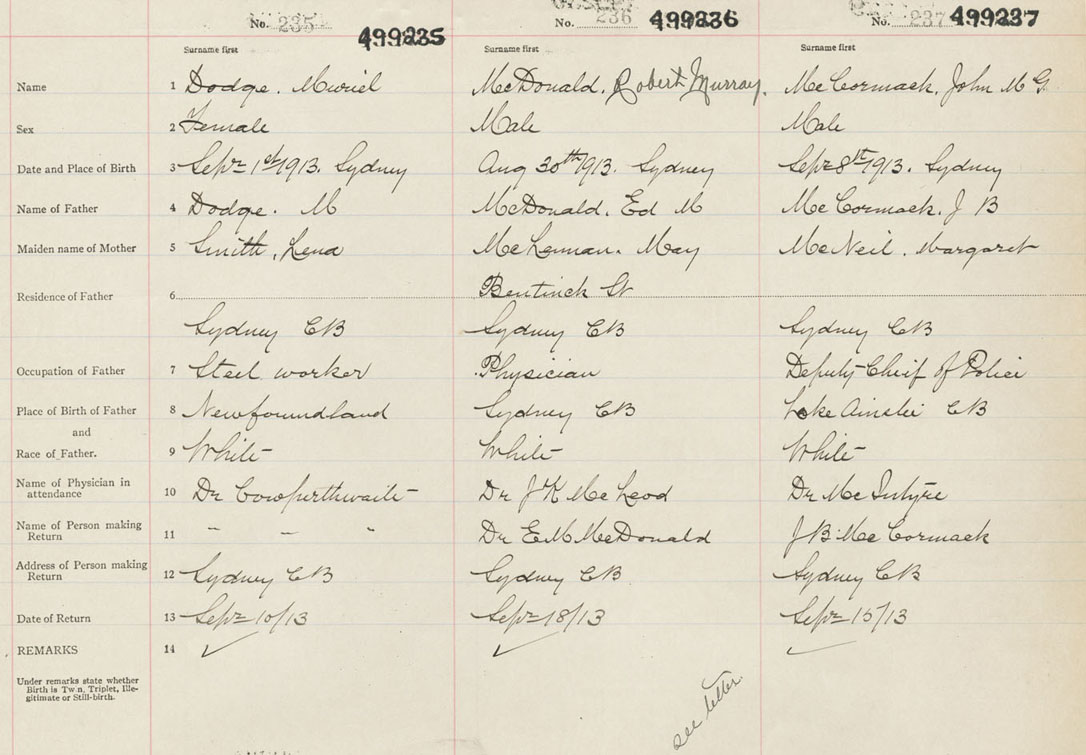 No. 235 499235 No. 236 499236 No. 237 499237
Surname first Surname first Surname first
Name 1 Dodge. Muriel McDonald. Robert Murray. McCormack. John McG.
Sex 2 Female Male Male
Date and Place of Birth 3 Sepr 1st 1913. Sydney Aug 30th 1913. Sydney Sepr 8th 1913. Sydney
Name of Father 4 Dodge. M McDonald. Ed M McCormack. J B
Maiden name of Mother 5 Smith, Lena McLennan. May McNeil. Margaret
Residence of Father 6 Bentinck St
Sydney CB Sydney CB Sydney CB
Occupation of Father 7 Steel worker Physician Deputy Cheif of Police
Place of Birth of Father 8 Newfoundland Sydney CB Lake Ainslie CB
and
Race of Father. 9 White White White
Name of Physician in
attendance 10 Dr Cowperthwaite Dr J K McLeod Dr McIntyre
Name of Person making
Return 11 " — " Dr E M McDonald J B McCormack
Address of Person making
Return 12 Sydney CB Sydney CB Sydney CB
Date of Return 13 Sepr 10/13 Sepr 18/13 Sepr 15/13
REMARKS 14
Under remarks state whether
Birth is Twin, Triplet, Ille-
gitimate or Still-birth.
see letter